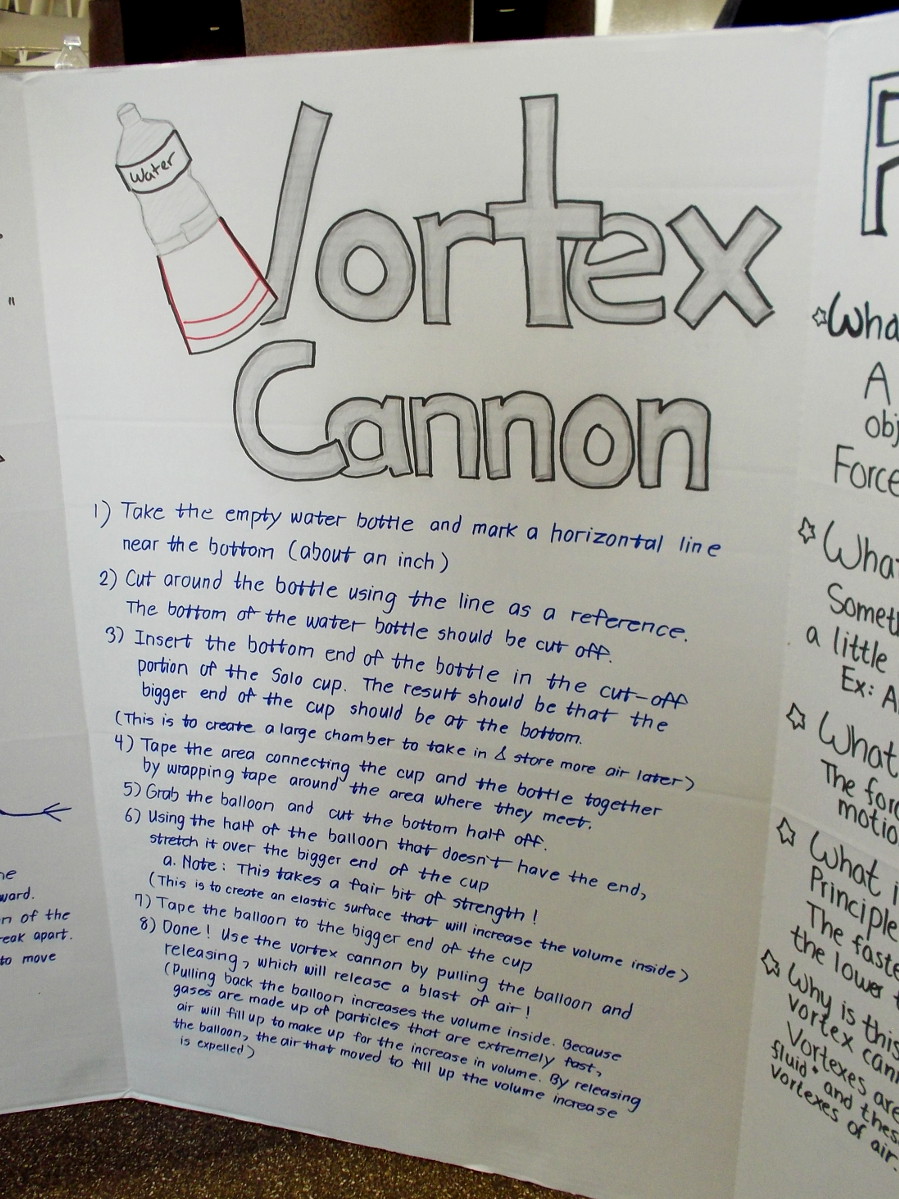 Water
Vortex
Cannon
1) Take the empty water bottle and mark a horizontal line
near the bottom (about an inch)
2) Cut around the bottle using the line as a reference.
The bottom of the water bottle should be cut off.
3) Insert the bottom end of the bottle in the cut-off
portion of the Solo cup. The result should be that the
bigger end of the cup should be at the bottom.
(This is to create a large chamber to take in & store more air later)
4) Tape the area connecting the cup and the bottle together
by wrapping tape around the area where they meet.
5) Grab the balloon and cut the bottom half off.
6) Using the half of the balloon that doesn't have the end,
stretch it over the bigger end of the cup
a. Note: This takes a fair bit of strength!
(This is to create an elastic surface that will increase the volume inside)
7) Tape the balloon to the bigger end of the cup
8) Done! Use the vortex cannon by pulling the balloon and
releasing, which will release a blast of air!
(Pulling back the balloon increases the volume inside. Because
gases are made up of particles that are extremely fast,
air will fill up to make up for the increase in volume. By releasing
the balloon, the air that moved to fill up the volume increase
is expelled)
ward.
of the
eak apart.
to move
A
Force
What
a little
Ex: A
What
The
What i
Principle
The
the lower
Why is this
vortex
Vortexes are
fluid and
vortexes of air.